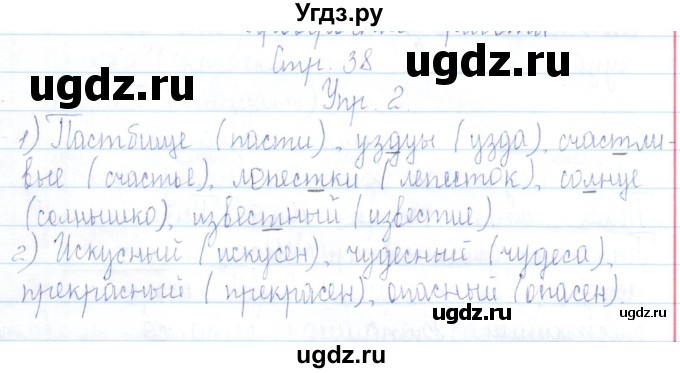 Угдз.ру
Стр. 38
ugdz.ru ugdz.ru
Упр. 2.
1) Пастбище (пасти), уздцы (узда), счастли-
ugdz.ru
вые (счастье), лепестки (лепесток), солнце
(солнышко), известный (известие).
ugdz.ru ugdz.ru
2) Искусный (искусен), чудесный (чудеса),
прекрасный (прекрасен), опасный (опасен).
ugdz.ru
ugdz.ru